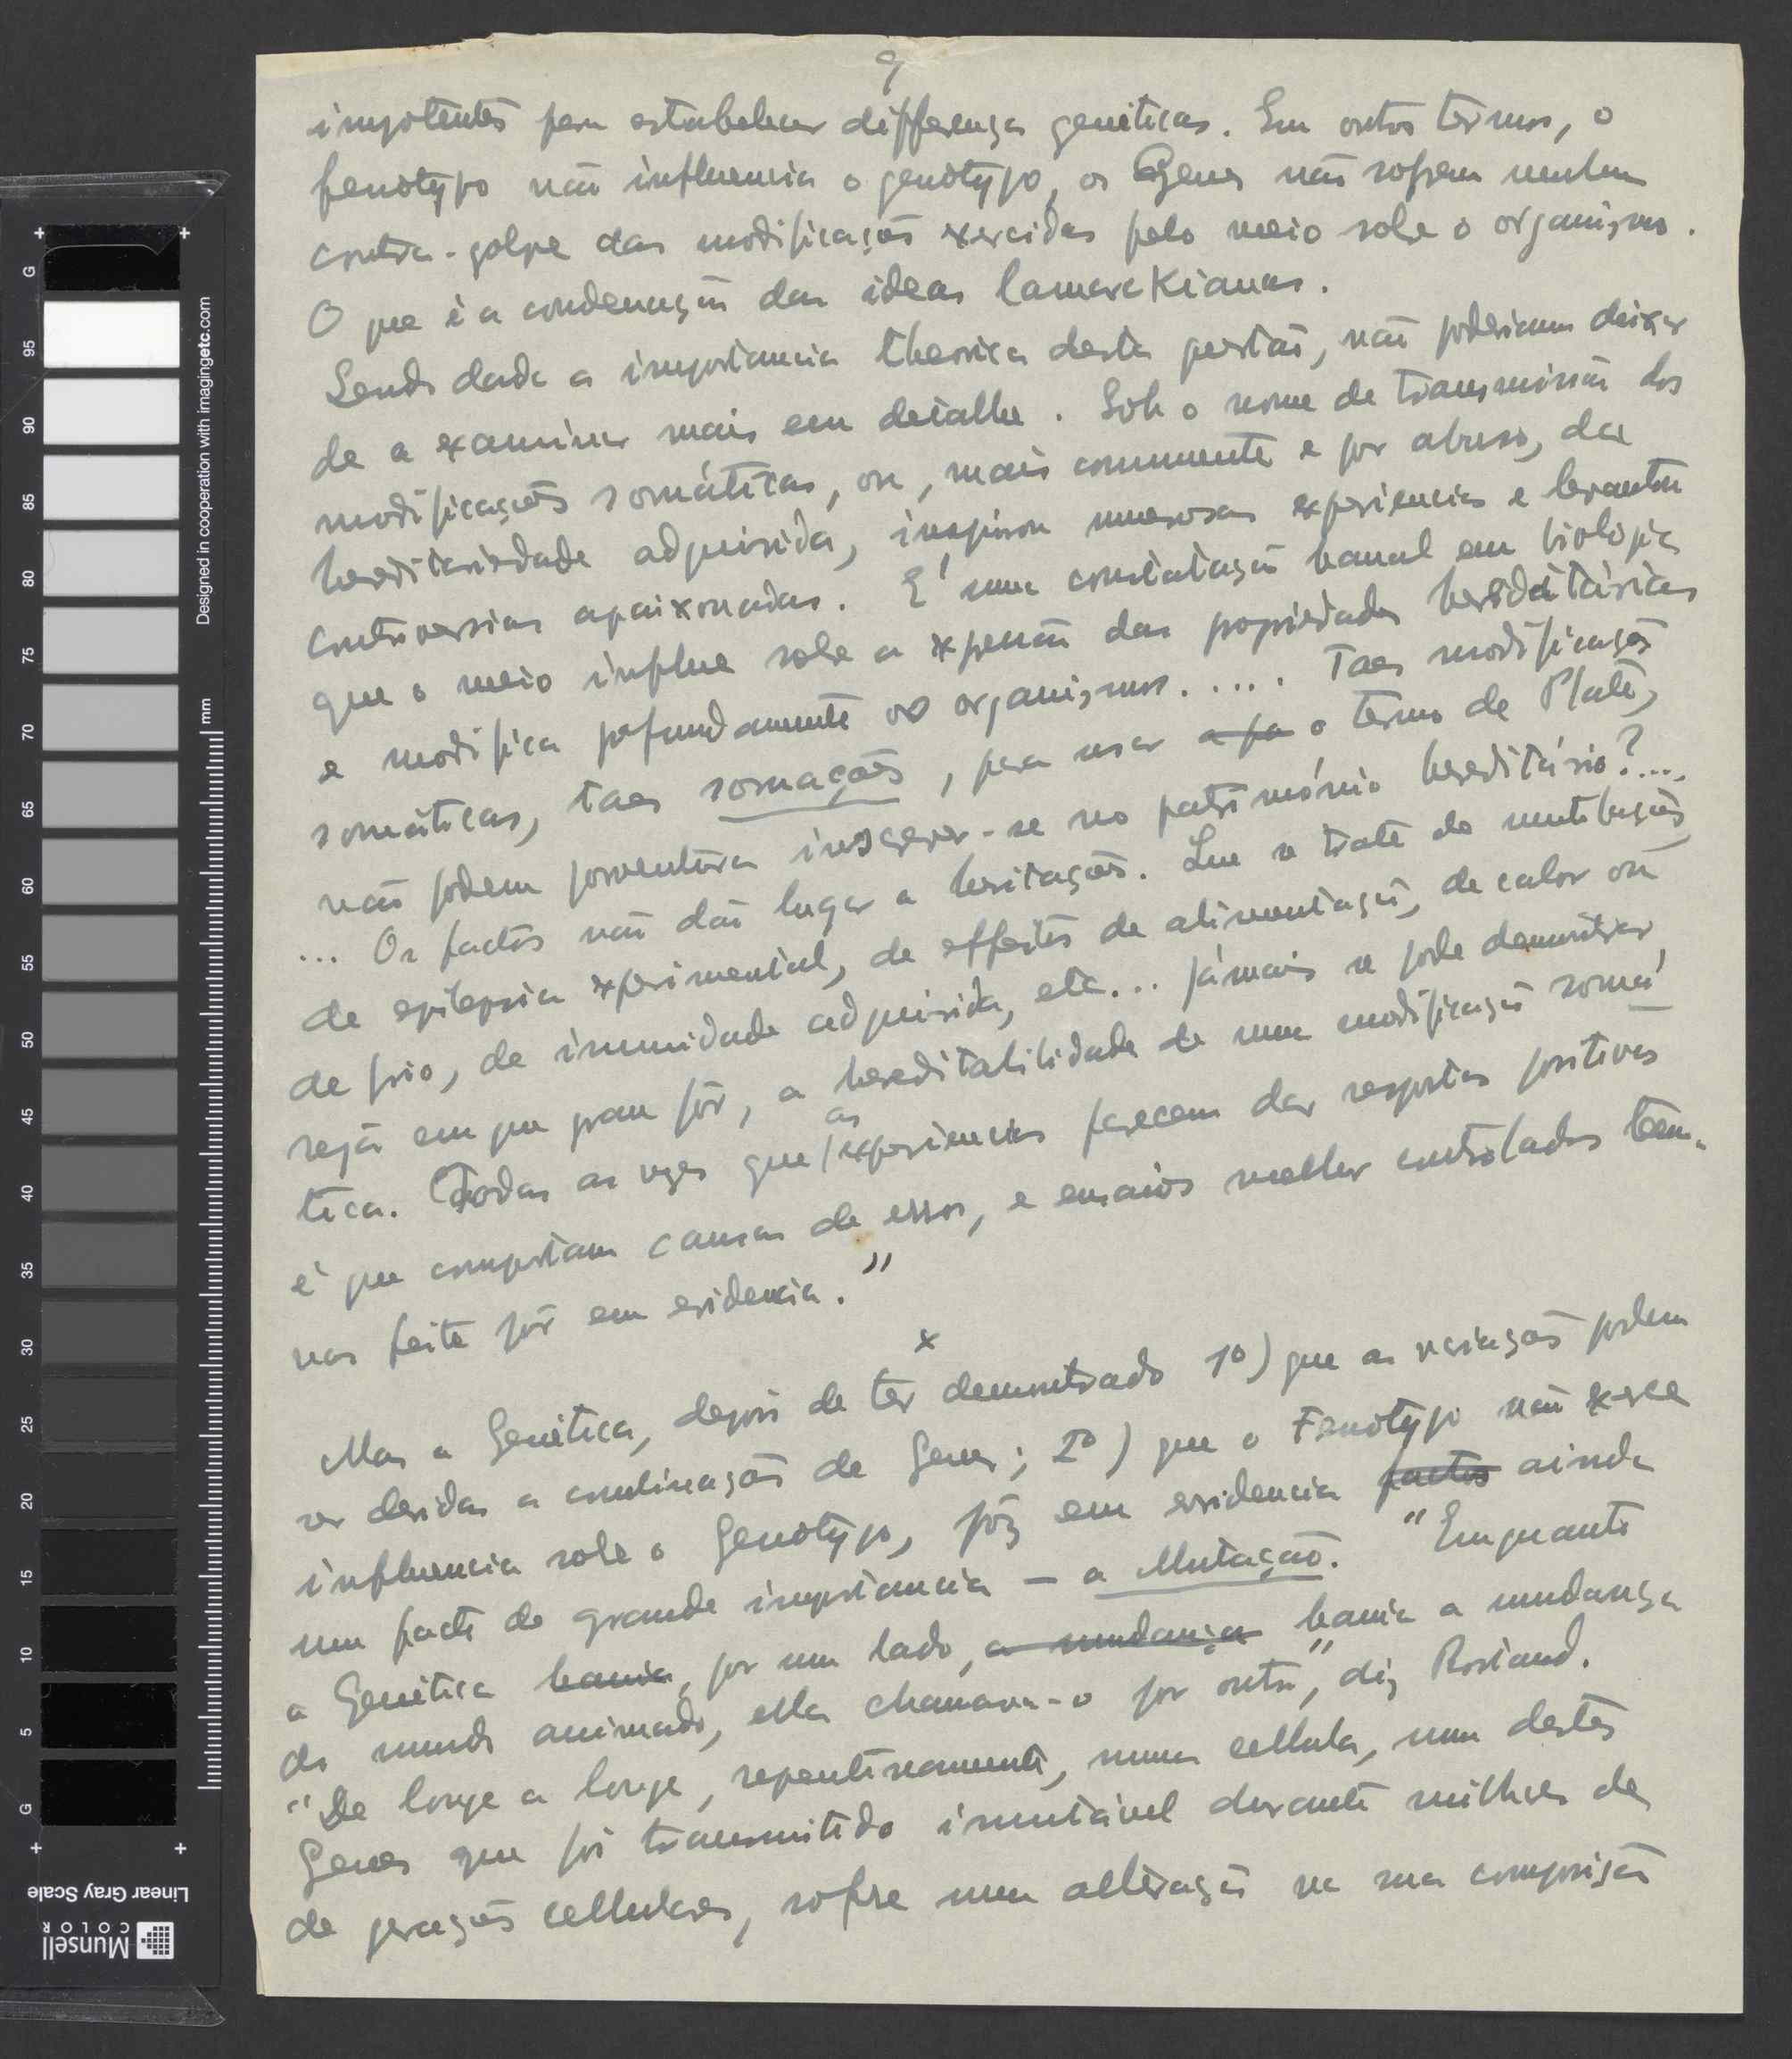 9
impotentes para estabelecer differenças geneticas. Em outros termos, o
fenotypo não influencia o genotypo, os Genes não soffrem nenhum
contra-golpe das modificações exercidas pelo meio sobre o organismo.
O que é a condenação das ideas lamarckianas.
Sendo dada a importancia theorica desta questão, não poderiamos deixar
de a examinar mais em detalhe. Sob o nome de transmissão dos
modificações somáticas, ou, mais commumente e por abuso, da
hereditariedade adquirida, inspirou numerosas experiencias e levantou
controversias apaixonadas. E' uma constatação banal em biologia
que o meio influe sobre a expressão das propriedades hereditárias
e modifica profundamente os organismos..... Taes modificações
somáticas, taes somações, para usar a pa o termo de Plate,
não podem porventura inscrever-se no património hereditário?....
... Os factos não dão lugar a hesitações. Que se trate de mutilações,
de epilepsia experimental, de effeitos de alimentação, de calor ou
de frio, de immunidade adquirida, etc... jámais se pode demonstrar,
seja em que grau fôr, a hereditabilidade de uma modificação somá
tica. Todas as vezes que as experiencias parecem dar respostas positivas
é que comportam causas de erros, e ensaios melhor controlados têm-
nas feito pôr em evidencia."
x
Mas a Genética, depois de ter demonstrado 1º) que as variações podem
ser devidas a combinações de Genes; 2º) que o Fenotypo não exerce
influencia sobre o Genotypo, pôz em evidencia factos ainda
um facto de grande importancia - a Mutação. "Emquanto
a Genética bania, por um lado, a mudança bania a mudança
do mundo animado, ella chamava-o por outro", diz Rostand.
"De longe a longe, repentinamente, numa cellula, um destes
Genes que foi transmitido imutável durante milhares de
de gerações cellulares, soffre uma alteração na sua composição
Designed in cooperation with imagingetc.com
mm
G
95
90
85
80
75
70
65
60
55
50
45
40
35
30
25
20
15
10
5
G
Linear Gray Scale
Munsell
COLOR